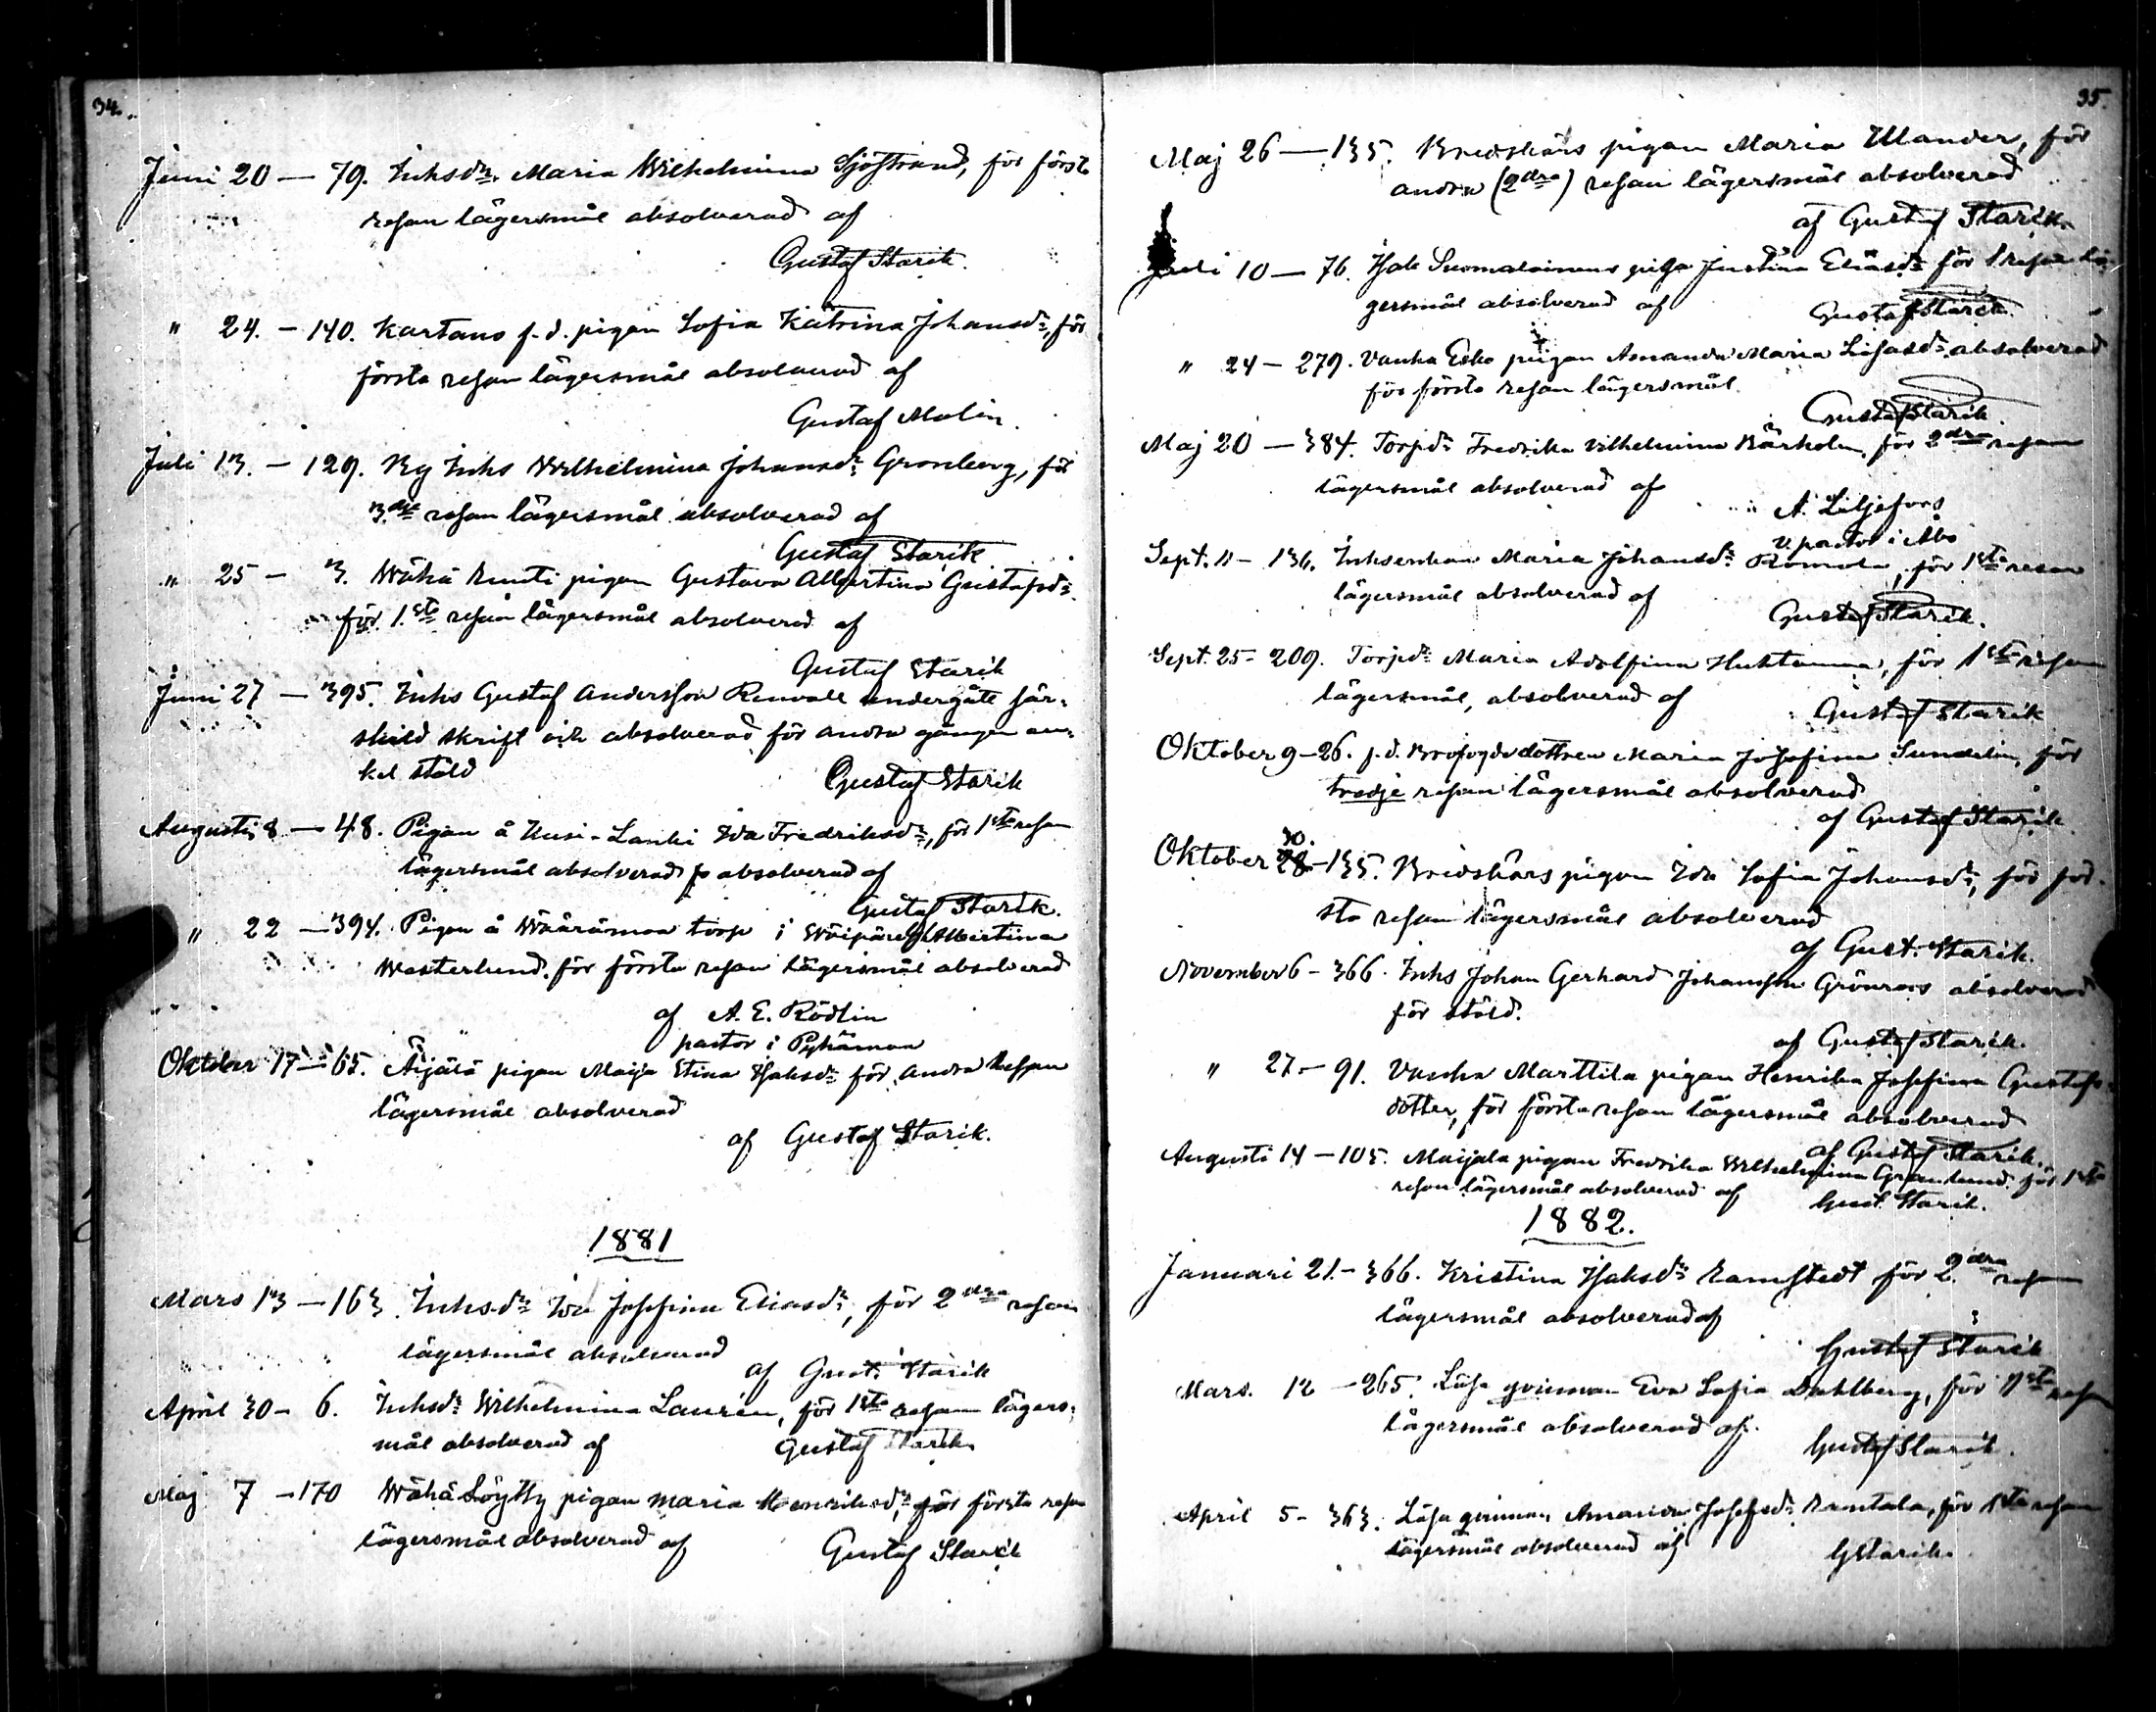 34.
Juni 20 — 79. Inhsdr. Maria Wilhelmina Sjöstrand, för första
resan lägersmål absolverad af
Gustaf Starik.
" 24. – 140. Kartano f.d. pigan Sofia Katrina Johansdr, för
första resan lägersmål absolverad af
Gustaf Molin.
Juli 13. – 129. By Inhs Wilhelmina Johansdr Gronberg, för
3.dje resan lägersmål absolverad af
Gustaf Starik
" 25 – 3. Wähä pigan Gustava Albertina Gustafsdr
för 1.sta resan lägersmål absolverad af
Gustaf Starik
Juni 27 – 395. Inhs Gustaf Andersson Renvall undergått sär-
skild skrift och absolverad för andra gången en-
kel stöld
Gustaf Starik
Augusti 8 – 48. Pigan å Uusi-Lanki Ida Fredriksdr, för 1sta resan
lägersmål absolverad absolverad af
Gustaf Starik.
" 22 – 394. Pigan å torp i Albertina
Westerlund för första resan lägersmål absolverad
af A. E. Rödlin
pastor i Pyhämaa
Oktober 17 – 65. Äijälä pigan Maija Stina Isaksdr för andra resan
lägersmål absolverad
af Gustaf Starik.
1881
Mars 13 – 163. Inhsdr Ida Josefina Eliasdr, för 2dra resan
lägersmål absolverad
af Gust. Starik
April 30 – 6. Inhsdr Wilhelmina Laurén, för 1sta resan lägers-
mål absolverad af
Gustaf Starik
Maj 7 – 170 Wähä Löytty pigan Maria Henriksdr, för första resan
lägersmål absolverad af
Gustaf Starik
35.
Maj 26 — 135. Bredskärs pigan Maria Ulander, för
andra (2dra) resan lägersmål absolverad
af Gustaf Starik.
Juli 10 — 76. Isak Suomalainens piga Justina Eliasdr för 1 resan lä-
gersmål absolverad af
Gustaf Starik
" 24 – 279. Vanha Esko pigan Amanda Maria absolverad
för första resan lägersmål.
Gustaf Starik
Maj 20 – 384. Torpdr Fredrika Vilhelmina för 2dra resan
lägersmål absolverad af
A. Liljefors
v. pastor i Åbo
Sept. 11 – 136. Inhsenkan Maria Johansdr för 1sta resan
lägersmål absolverad af
Gustaf Starik.
Sept. 25 – 209. Torpdr Maria Adolfina Huhtamaa, för 1sta resan
lägersmål, absolverad af
Gustaf Starik
Oktober 9 – 26. f.d. dottren Maria Josefina Sundelin, för
tredje resan lägersmål absolverad
af Gustaf Starik
30.
Oktober 28 – 135. Bredskärs pigan Ida Sofia Johansdr, för för-
sta resan lägersmål absolverad
af Gust. Starik.
November 6 – 366. Inhs Johan Gerhard Johansson Grönroos absolverad
för stöld.
af Gustaf Starik.
" 27 – 91. Vanha Marttila pigan Henrika Josefina Gustafs-
dotter, för första resan lägersmål absolverad
af Gustaf Starik.
Augusti 14 – 105. Maijala pigan Fredrika Wilhelmina Granlund för 1sta
resan lägersmål absolverad af
Gust. Starik.
1882.
Januari 21. – 366. Kristina Isaksdr Ramstedt för 2.dra resan
lägersmål absolverad af
Gustaf Starik
Mars. 12 – 265. Lösa qvinnan Eva Sofia Dahlberg, för 1sta resan
lägersmål absolverad af.
Gustaf Starik.
April 5 – 363. Lösa qvinnan Amanda Josefsdr Rantala, för 1sta resan
lägersmål absolverad af
GStarik.